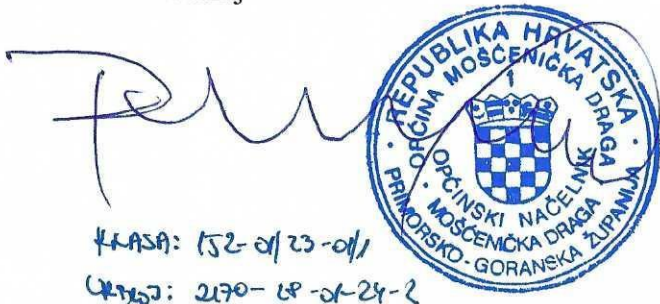 REPUBLIKA HRVATSKA
PRIMORSKO-GORANSKA ŽUPANIJA
OPĆINA MOŠĆENIČKA DRAGA
1
OPĆINSKI NAČELNIK
MOŠĆENIČKA DRAGA
KLASA: 152-01/23-01/1
URBROJ: 2170-28-01-24-2